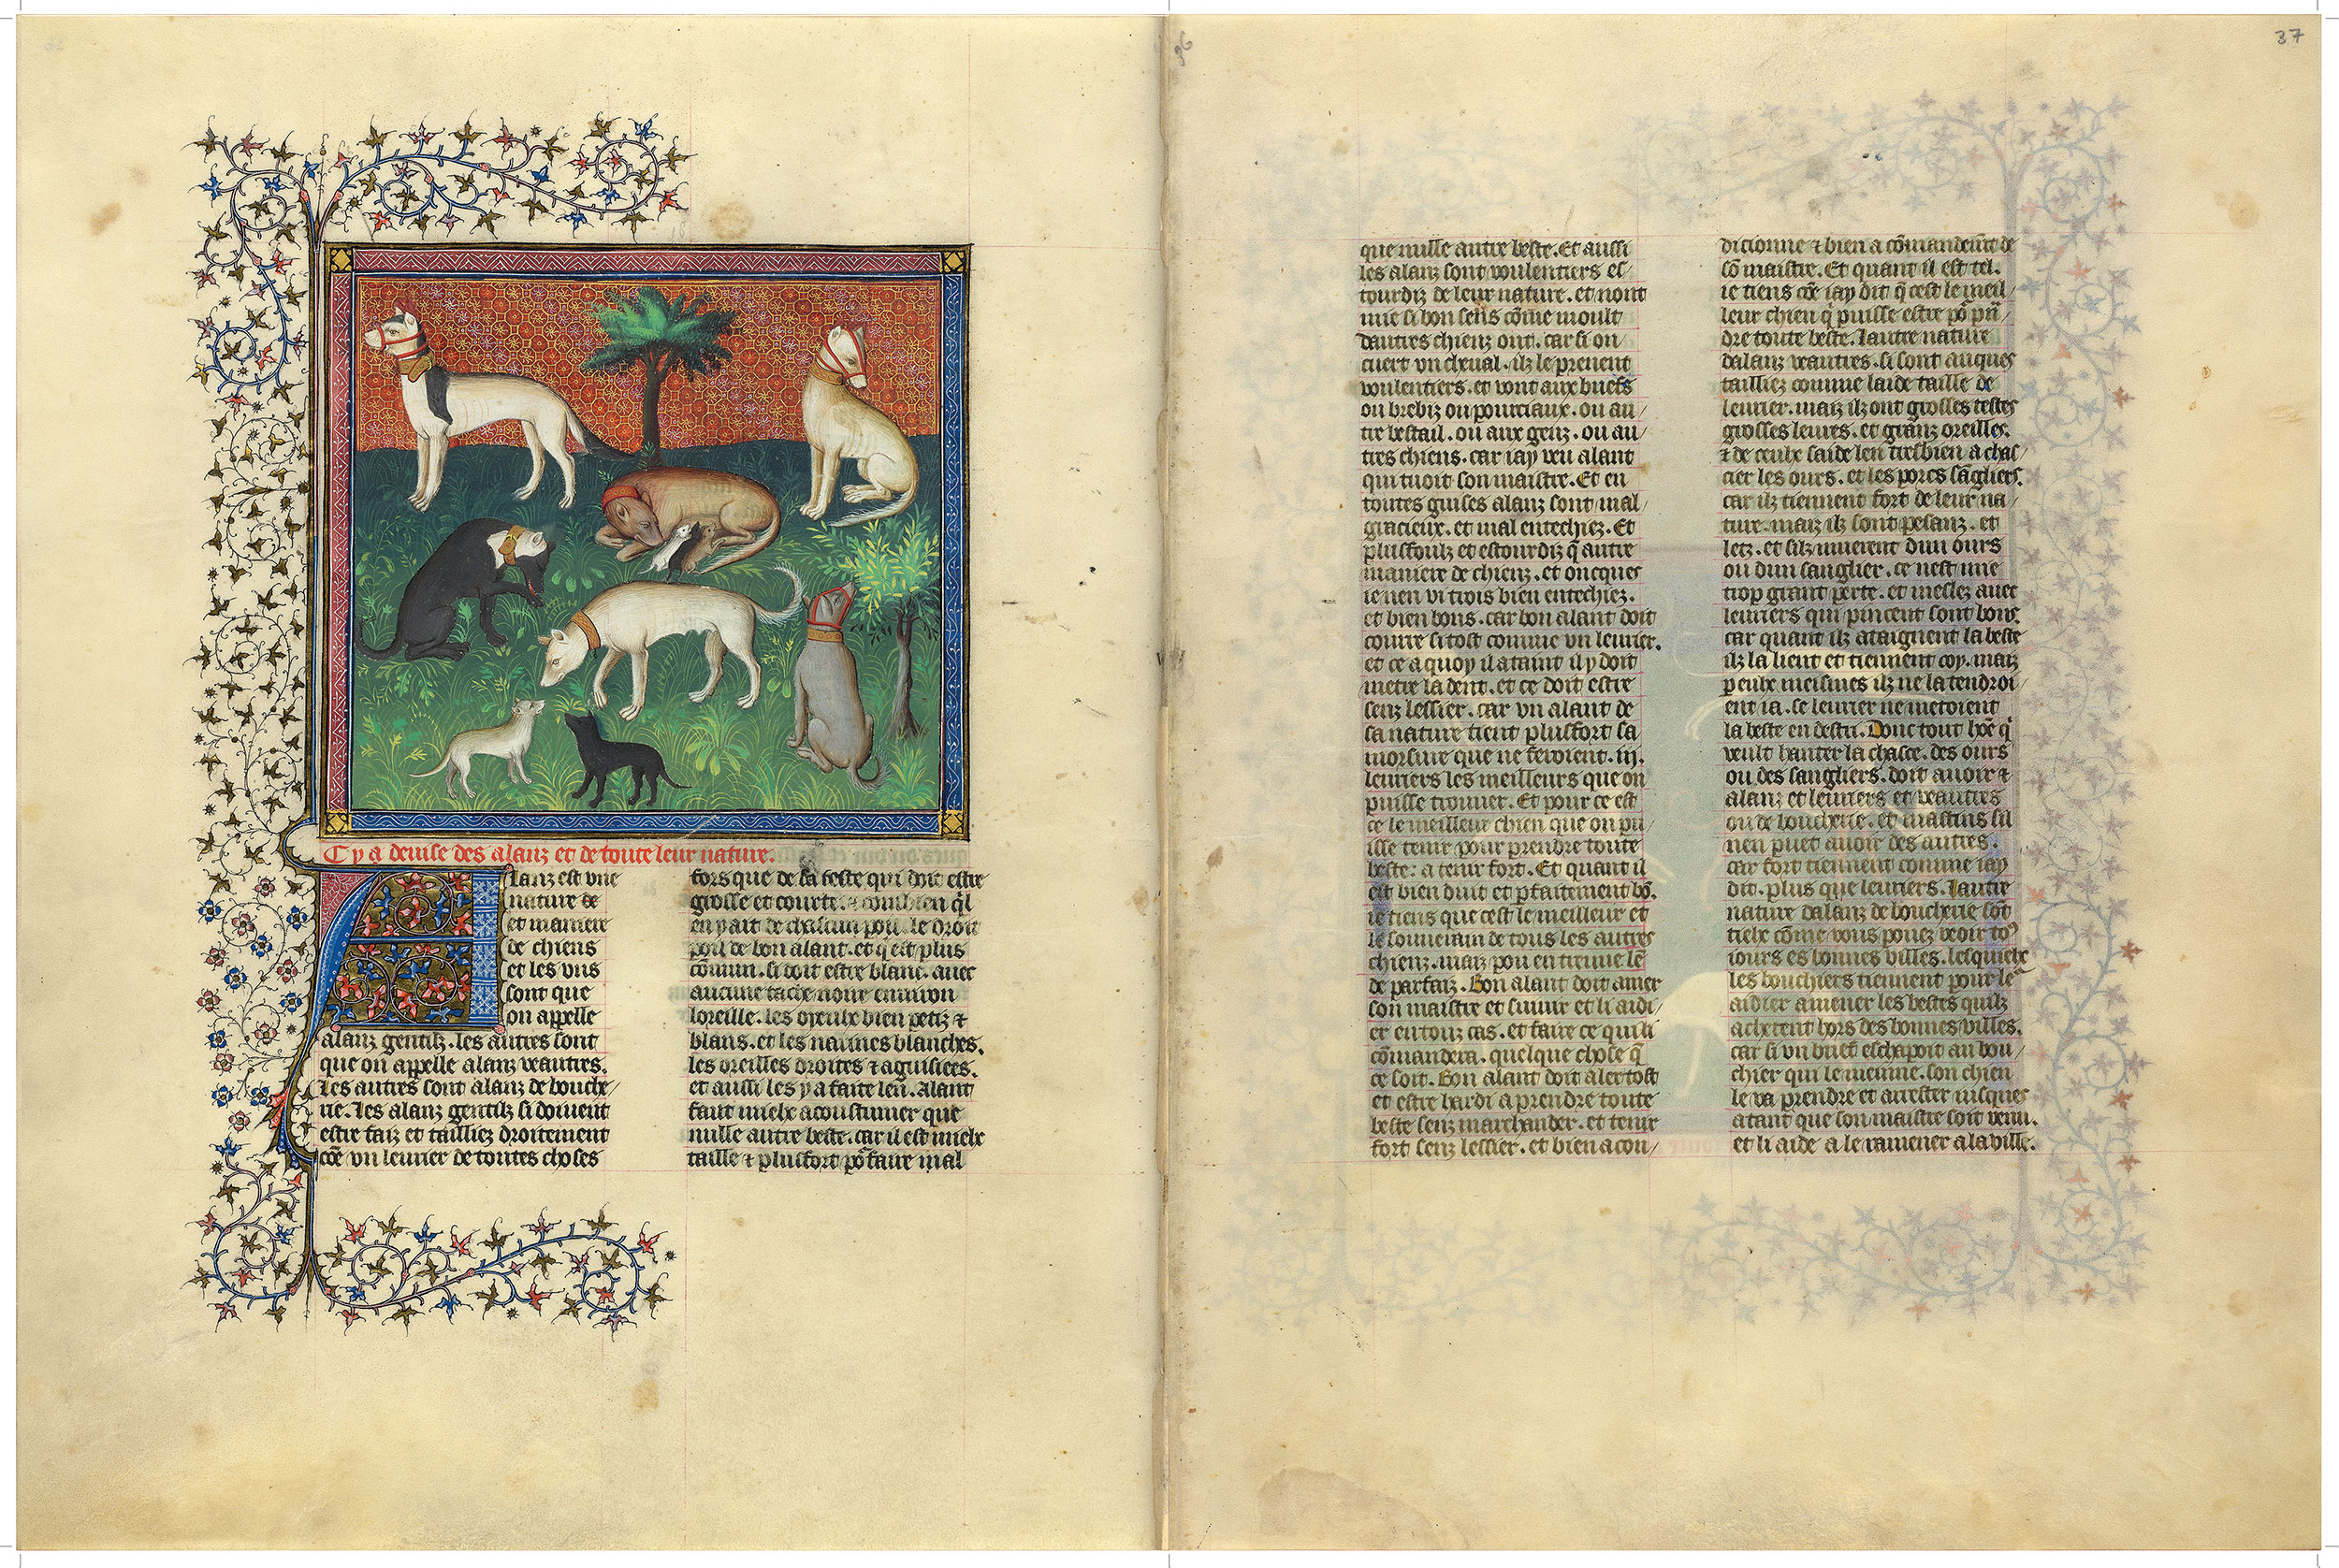 Cy a deuise des alanz et de toute leur nature.
Alanz est vne
nature de
et maniere
de chiens
et les vns
sont que
on appelle
alanz gentilz. les autres sont
que on appelle alanz veautres.
Les autres sont alanz de bouche/
rie. Les alanz gentilz si doiuent
estre faiz et tailliez droitement
cōe vn leurier de toutes choses
fors que de la teste qui doit estre
grosse et courte. combien ql
en y ait de chascun poil. le droit
poil de bon alant. et q̄ est plus
cōmun. si doit estre blanc. auec
aucune tache noire enuiron
loreille. les oreulx bien petiz ⁊
blans. et les narines blanches.
les oreilles droites ⁊ aguisiees.
et aussi les y a faite len. Alant
faut mielx acoustumer que
nulle autre beste. car il est mielx
taille ⁊ plus fort po faire mal
37
que nulle autre beste. Et aussi
les alanz sont voulentiers es/
tourdiz de leur nature. et nont
mie si bon sens cōme moult
dautres chienz ont. car si on
cuert vn cheual. ilz le prenent
voulentiers. et vont aux buefs
ou brebiz ou pourciaux. ou au/
tre bestail. ou aux genz. ou au/
tres chiens. car iay veu alant
qui tuoit son maistre. Et en
toutes guises alanz sont mal/
gracieux. et mal entechiez. Et
plus foulz et estourdiz q̄ autre
maniere de chienz. et oncques
ie nen vi trois bien entechiez.
et bien bons. car bon alant doit
courre si tost comme vn leurier.
et ce a quoy il ataint il y doit
metre la dent. et ce doit estre
senz lessier. car vn alant de
sa nature tient plus fort sa
morsure que ne feroient. iij.
leuriers les meilleurs que on
puisse trouuer. Et pour ce est
ce le meilleur chien que on pu/
isse tenir pour prendre toute
beste: a tenir fort. Et quant il
est bien duit et pfaitement bō.
ie tiens que cest le meilleur et
le souuerain de tous les autres
chienz. mais pou en treuue lē
de parfaiz. Bon alant doit amer
son maistre et suiuir et li aidi/
er en touz cas. et faire ce qui li
cōmandera. quelque chose q̄
ce soit. Bon alant doit aler tost
et estre hardi a prendre toute
beste senz marchander. et tenir
fort senz lessier. et bien a con/
dicionne ⁊ bien a cōmandemt de
sō maistre. Et quant il est tel.
ie tiens cōe iay dit q̄ cest le meil/
leur chien q puisse estre po pn/
dre toute beste. Lautre nature
dalanz veautres. si sont auques
tailliez comme laide taille de
leurier. mais ilz ont grosses testes
grosses leures. et granz oreilles.
⁊ de ceulx saide len tresbien a chas/
cier les ours. et les porcs sāgliers.
car ilz tiennent fort de leur na/
ture. mais ilz sont pesanz. et
letz. et silz muerent dun ours
ou dun sanglier. ce nest mie
trop grant perte. et meslez auec
leuriers qui pincent sont bons.
car quant ilz ataignent la beste
ilz la lient et tiennent coy. mais
p eulx meismes ilz ne la tendroi/
ent ia. se leurier ne metoient
la beste en destri. Donc tout hōe q
veult hanter la chasce. des ours
ou des sangliers. doit auoir ⁊
alanz et leuriers et veautres
ou de boucherie. et mastins sil
nen puet auoir des autres.
car fort tiennent comme iay
dit. plus que leuriers. Lautre
nature dalanz de boucherie sōt
tielx cōme vous pouez veoir to
iours es bonnes villes. lesquielx
les bouchiers tiennent pour le
aidier amener les bestes quilz
achetent hors des bonnes villes.
car si vn buef eschapoit au bou/
chier qui le meinne. son chien
le va prendre et arrester iusques
atant que son maistre soit venu.
et li aide a le ramener a la ville.